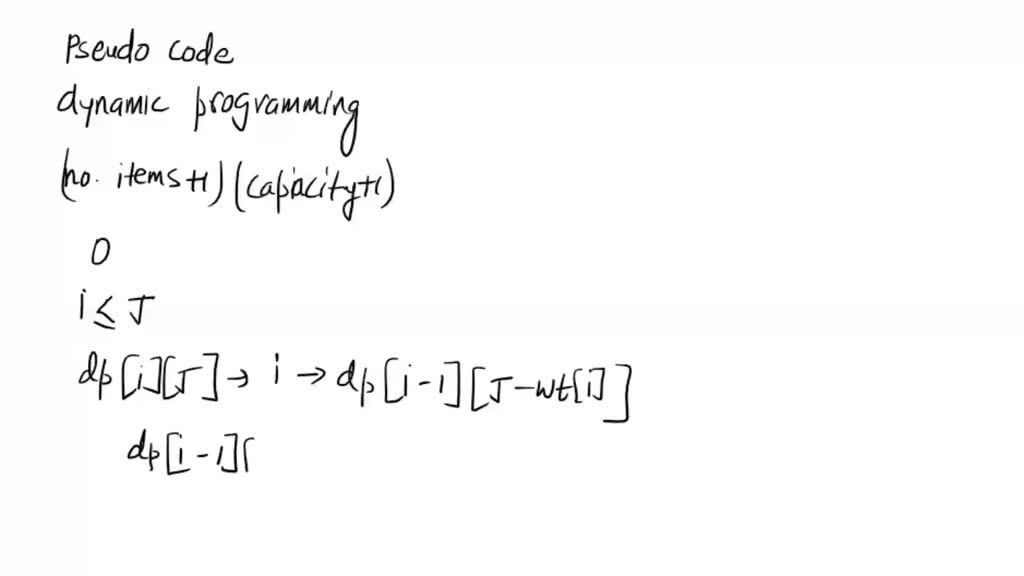 Pseudo code
dynamic programming
(no. items+1) (capacity+1)
0
i ≤ J
dp[i][J] → i → dp[i-1][J-wt[i]]
dp[i-1][